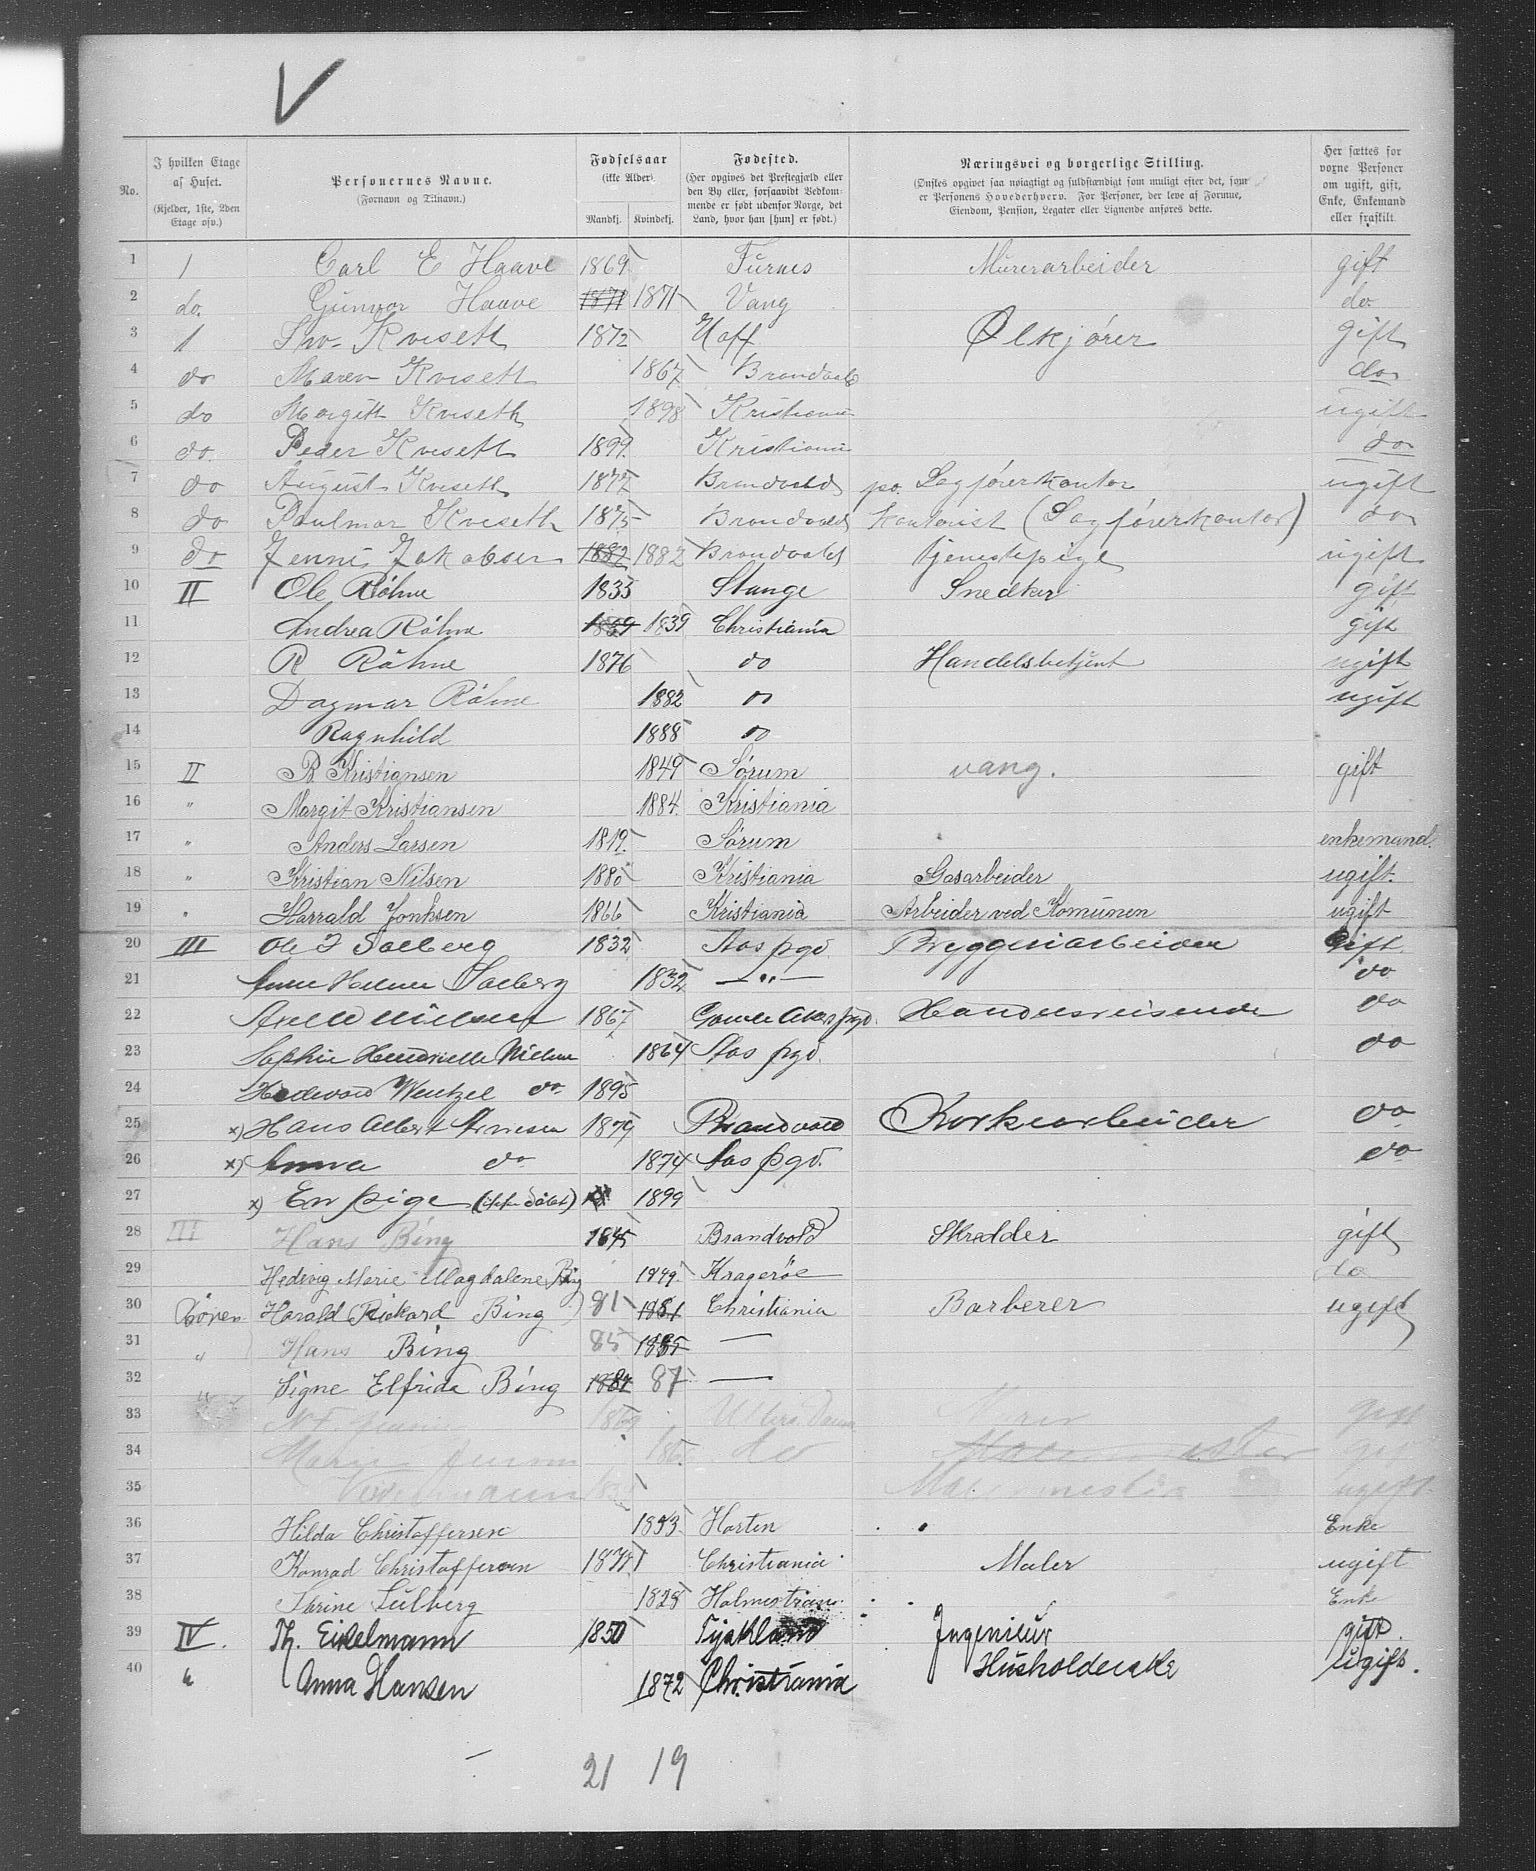 V
No. | I hvilken Etage af Huset. (Kjelder, 1ste, 2den Etage osv.) | Personernes Navne. (Fornavn og Tilnavn.) | Fødselsaar (ikke Alder). Mandkj. Kvindekj. | Fødested. (Her opgives det Prestegjæld eller den By eller, forsaavidt Vedkommende er født udenfor Norge, det Land, hvor han [hun] er født.) | Næringsvei og borgerlige Stilling. (Ønskes opgivet saa nøiagtigt og fuldstændigt som muligt efter det, som er Personens Hovederhverv. For Personer, der leve af Formue, Eiendom, Pension, Legater eller Lignende anføres dette. | Her sættes for voxne Personer om ugift, gift, Enke, Enkemand eller fraskilt.
1 1 Carl E Haave 1869 Furnes Murerarbeider gift
2 do. Gunvor Haave 1871 1871 Vang do
3 1 Kviseth 1872 Hoff Ølkjører gift
4 do Maren Kviseth 1867 Brandvold do
5 do Margith Kviseth 1898 Kristiania ugift
6 do. Peder Kviseth 1899 Kristiania do
7 do August Kviseth 1877 Brandvold paa Sagførerkontor ugift
8 do Paulmar Kviseth 1875 Brandvold kontorist (Sagførerkontor) do
9 do Jenni Jakobsen 1882 1882 Brandvold tjenestepige ugift
10 II Ole Røhne 1835 Stange Snedker gift
11 Andrea Røhne 1839 1839 Christiania gift
12 R Røhne 1876 do Handelsbetjent ugift
13 Dagmar Røhne 1882 do ugift
14 Ragnhild 1888 do
15 II R Kristiansen 1849 Sørum vang. gift
16 " Margit Kristiansen 1884. Kristiania
17 " Anders Larsen 1819. Sørum enkemand.
18 " Kristian Nilsen 1880 Kristiania Gasarbeider ugift.
19 " Harrald Jonhsen 1866 Kristiania Arbeider ved Komunen ugift
20 III Ole J Solberg 1832 Aas pgd. Bryggeriarbeider Gift
21 Anne Helene Solberg 1832 — " — do
22 Axel Nielsen 1867 Gamle Akers pgd. Handelsreisende do
23 Sophie Hendrielle Nielsen 1864 Aas pgd. do
24 Wentzel do. 1895
25 x) Hans Albert Arnesen 1879 Brandvold Korkearbeider do
26 x) Anna do 1874 Aas pgd. do
27 x) En pige (ikke døbt) 1899
28 III Hans Bing 1845 Brandvold Skrædder gift
29 Hedevig Marie Magdalene Bing 1849. Kragerøe do
30 Børn Harald Rickard Bing 81 1881 Christiania Barberer ugift
31 " Hans Bing 85 1885 —
32 " Signe Elfride Bing 1887 87 —
33 gift
34 do
35 ugift
36 Hilda Christoffersen 1853. Horten Enke
37 Konrad Christoffersen Christiania Maler ugift
38 1828 Holmestrand Enke
39 IV. Th. Eikelmann 1850 Tyskland Ingeniør gift.
40 " Anna Hansen 1872 Christiania Husholderske Ugift.
21 19